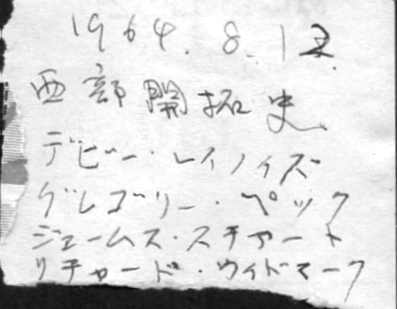 1964.8.12
西部開拓史
デビー・レイノイズ
グレゴリー・ペック
ジェームス・スチアート
リチャード・ウィドマーク